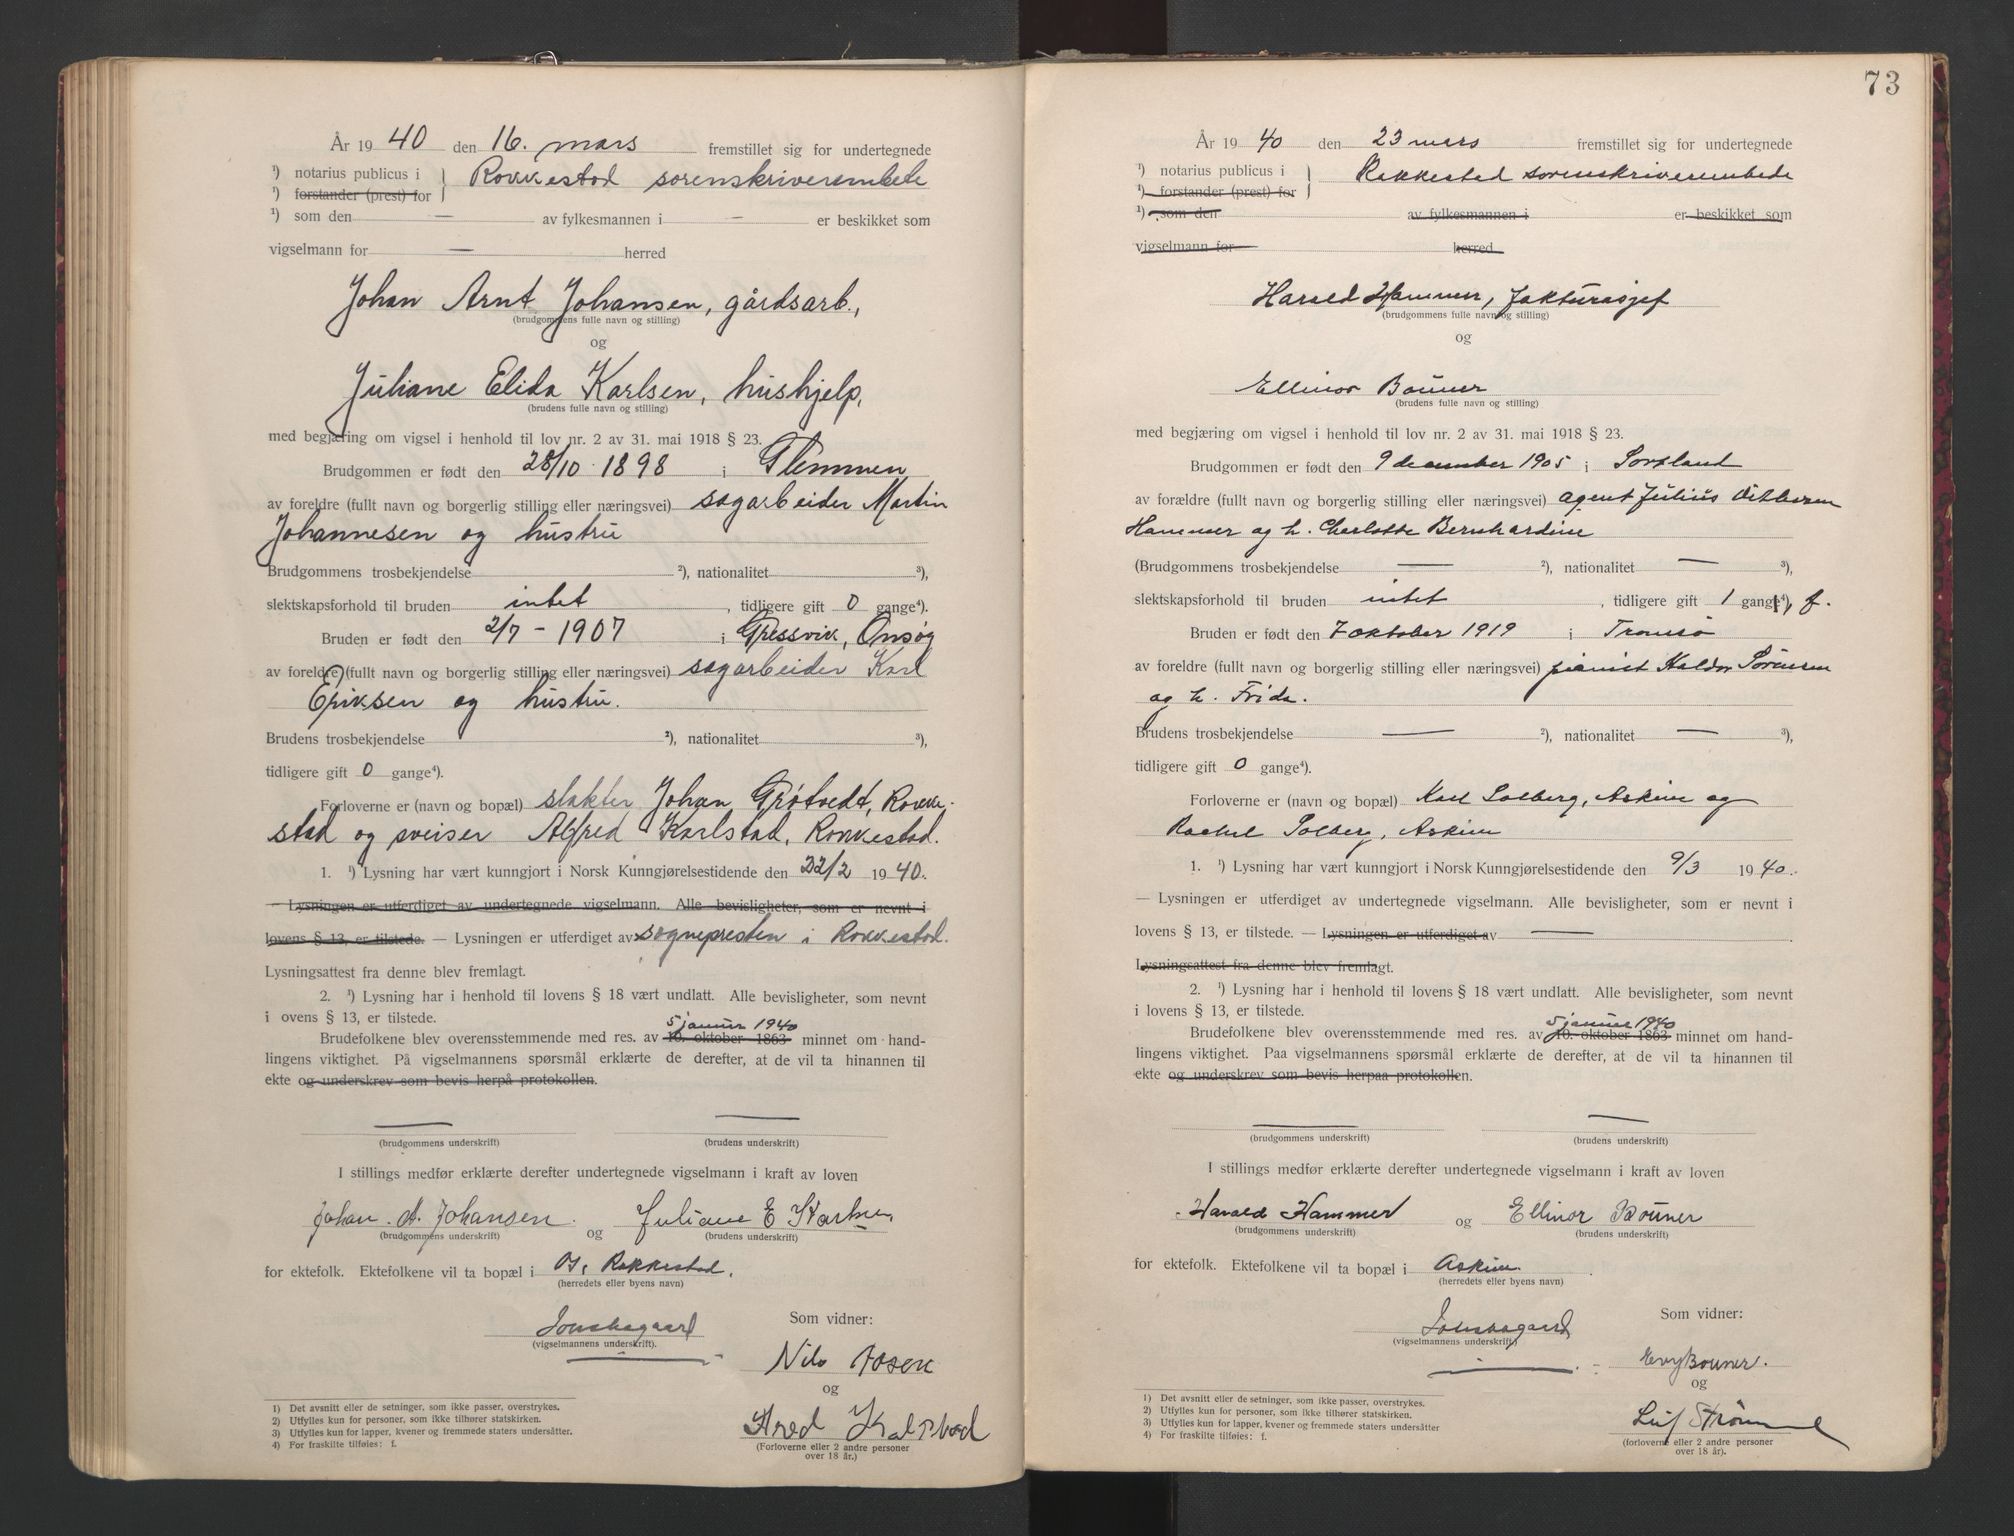 År 19 40 den 16. mars fremstillet sig for undertegnede
¹) notarius publicus i } Rakkestad sorenskriverembete
¹) forstander (prest) for
¹) som den — av fylkesmannen i — er beskikket som
vigselmann for — herred
Johan Arnt Johansen, gårdsarb.,
(brudgommens fulle navn og stilling)
og
Juliane Elida Karlsen, hushjelp,
(brudens fulle navn og stilling)
med begjæring om vigsel i henhold til lov nr. 2 av 31. mai 1918 § 23.
Brudgommen er født den 28/10 1898 i Glemmen
av foreldre (fullt navn og borgerlig stilling eller næringsvei) sagarbeider Martin
Johannesen og hustru
Brudgommens trosbekjendelse ²), nationalitet ³),
slektskapsforhold til bruden intet , tidligere gift 0 gange⁴).
Bruden er født den 2/7 - 1907 i Gressvik, Onsøy
av foreldre (fullt navn og borgerlig stilling eller næringsvei) sagarbeider Karl
Eriksen og hustru.
Brudens trosbekjendelse ²), nationalitet ³),
tidligere gift 0 gange⁴).
Forloverne er (navn og bopæl) slakter Johan Grøtvedt, Rakke-
stad og sveiser Alfred Karlstad, Rakkestad.
1. ¹) Lysning har vært kunngjort i Norsk Kunngjørelsestidende den 22/2 19 40.
— Lysningen er utferdiget av undertegnede vigselmann. Alle bevisligheter, som er nevnt i
lovens § 13, er tilstede. — Lysningen er utferdiget av sognepresten i Rakkestad.
Lysningsattest fra denne blev fremlagt.
2. ¹) Lysning har i henhold til lovens § 18 vært undlatt. Alle bevisligheter, som nevnt
i ovens § 13, er tilstede.
5 januar 1940
Brudefolkene blev overensstemmende med res. av 10. oktober 1863 minnet om hand-
lingens viktighet. På vigselmannens spørsmål erklærte de derefter, at de vil ta hinannen til
ekte og underskrev som bevis herpå protokollen.
— —
(brudgommens underskrift) (brudens underskrift)
I stillings medfør erklærte derefter undertegnede vigselmann i kraft av loven
Johan. A. Johansen. og Juliane E Karlsen
(brudgommens underskrift) (brudens underskrift)
for ektefolk. Ektefolkene vil ta bopæl i Os, Rakkestad.
(herredets eller byens navn)
Som vidner:
(vigselmannens underskrift).
Nils
og
Karlstad
(Forloverne eller 2 andre personer
over 18 år.)
1) Det avsnitt eller de setninger, som ikke passer, overstrykes.
2) Utfylles kun for personer, som ikke tilhører statskirken.
3) Utfylles kun for lapper, kvener og fremmede staters undersåtter.
4) For fraskilte tilføies: f.
73
År 19 40 den 23 mars fremstillet sig for undertegnede
¹) notarius publicus i } Rakkestad sorenskriverembede
¹) forstander (prest) for
¹) som den av fylkesmannen i er beskikket som
vigselmann for herred
Harald Hammer, fakturasjef
(brudgommens fulle navn og stilling)
og
Ellinor Bouner
(brudens fulle navn og stilling)
med begjæring om vigsel i henhold til lov nr. 2 av 31. mai 1918 § 23.
Brudgommen er født den 9 december 1905 i Sortland
av forældre (fullt navn og borgerlig stilling eller næringsvei) agent Julius
Hammer og h. Charlotte Bernhardine
(Brudgommens trosbekjendelse — ²), nationalitet — ³),
slektskapsforhold til bruden intet , tidligere gift 1 gang⁴), f.
Bruden er født den 7 oktober 1919 i Tromsø
av foreldre (fullt navn og borgerlig stilling eller næringsvei) pianist Haldor Sørensen
og h. Frida.
Brudens trosbekjendelse — ²), nationalitet — ³),
tidligere gift 0 gange⁴).
Forloverne er (navn og bopæl) Karl Solberg, Askim og
Rachel Solberg, Askim
1. ¹) Lysning har vært kunngjort i Norsk Kunngjørelsestidende den 9/3 19 40.
— Lysningen er utferdiget av undertegnede vigselmann. Alle bevisligheter, som er nevnt i
lovens § 13, er tilstede. — Lysningen er utferdiget av —
Lysningsattest fra denne blev fremlagt.
2. ¹) Lysning har i henhold til lovens § 18 vært undlatt. Alle bevisligheter, som nevnt
i lovens § 13, er tilstede.
5 januar 1940
Brudefolkene blev overensstemmende med res. av 10. oktober 1863 minnet om hand-
lingens viktighet. Paa vigselmannens spørsmål erklærte de derefter, at de vil ta hinannen til
ekte og underskrev som bevis herpaa protokollen.
— —
(brudgommens underskrift) (brudens underskrift)
I stillings medfør erklærte derefter undertegnede vigselmann i kraft av loven
Harald Hammer og Ellinor Bouner
(brudgommens underskrift) (brudens underskrift)
for ektefolk. Ektefolkene vil ta bopæl i Askim.
(herredets eller byens navn)
Som vidner:
(vigselmannens underskrift)
Evy Bouner.
og
Leif
(forloverne eller 2 andre personer
over 18 år).
1) Det avsnitt eller de setninger, som ikke passer, overstrykes.
2) Utfylles kun for personer, som ikke tilhører statskirken.
3) Utfylles kun for lapper, kvener og fremmede staters undersåtter
4) For fraskilte tilføies: f.